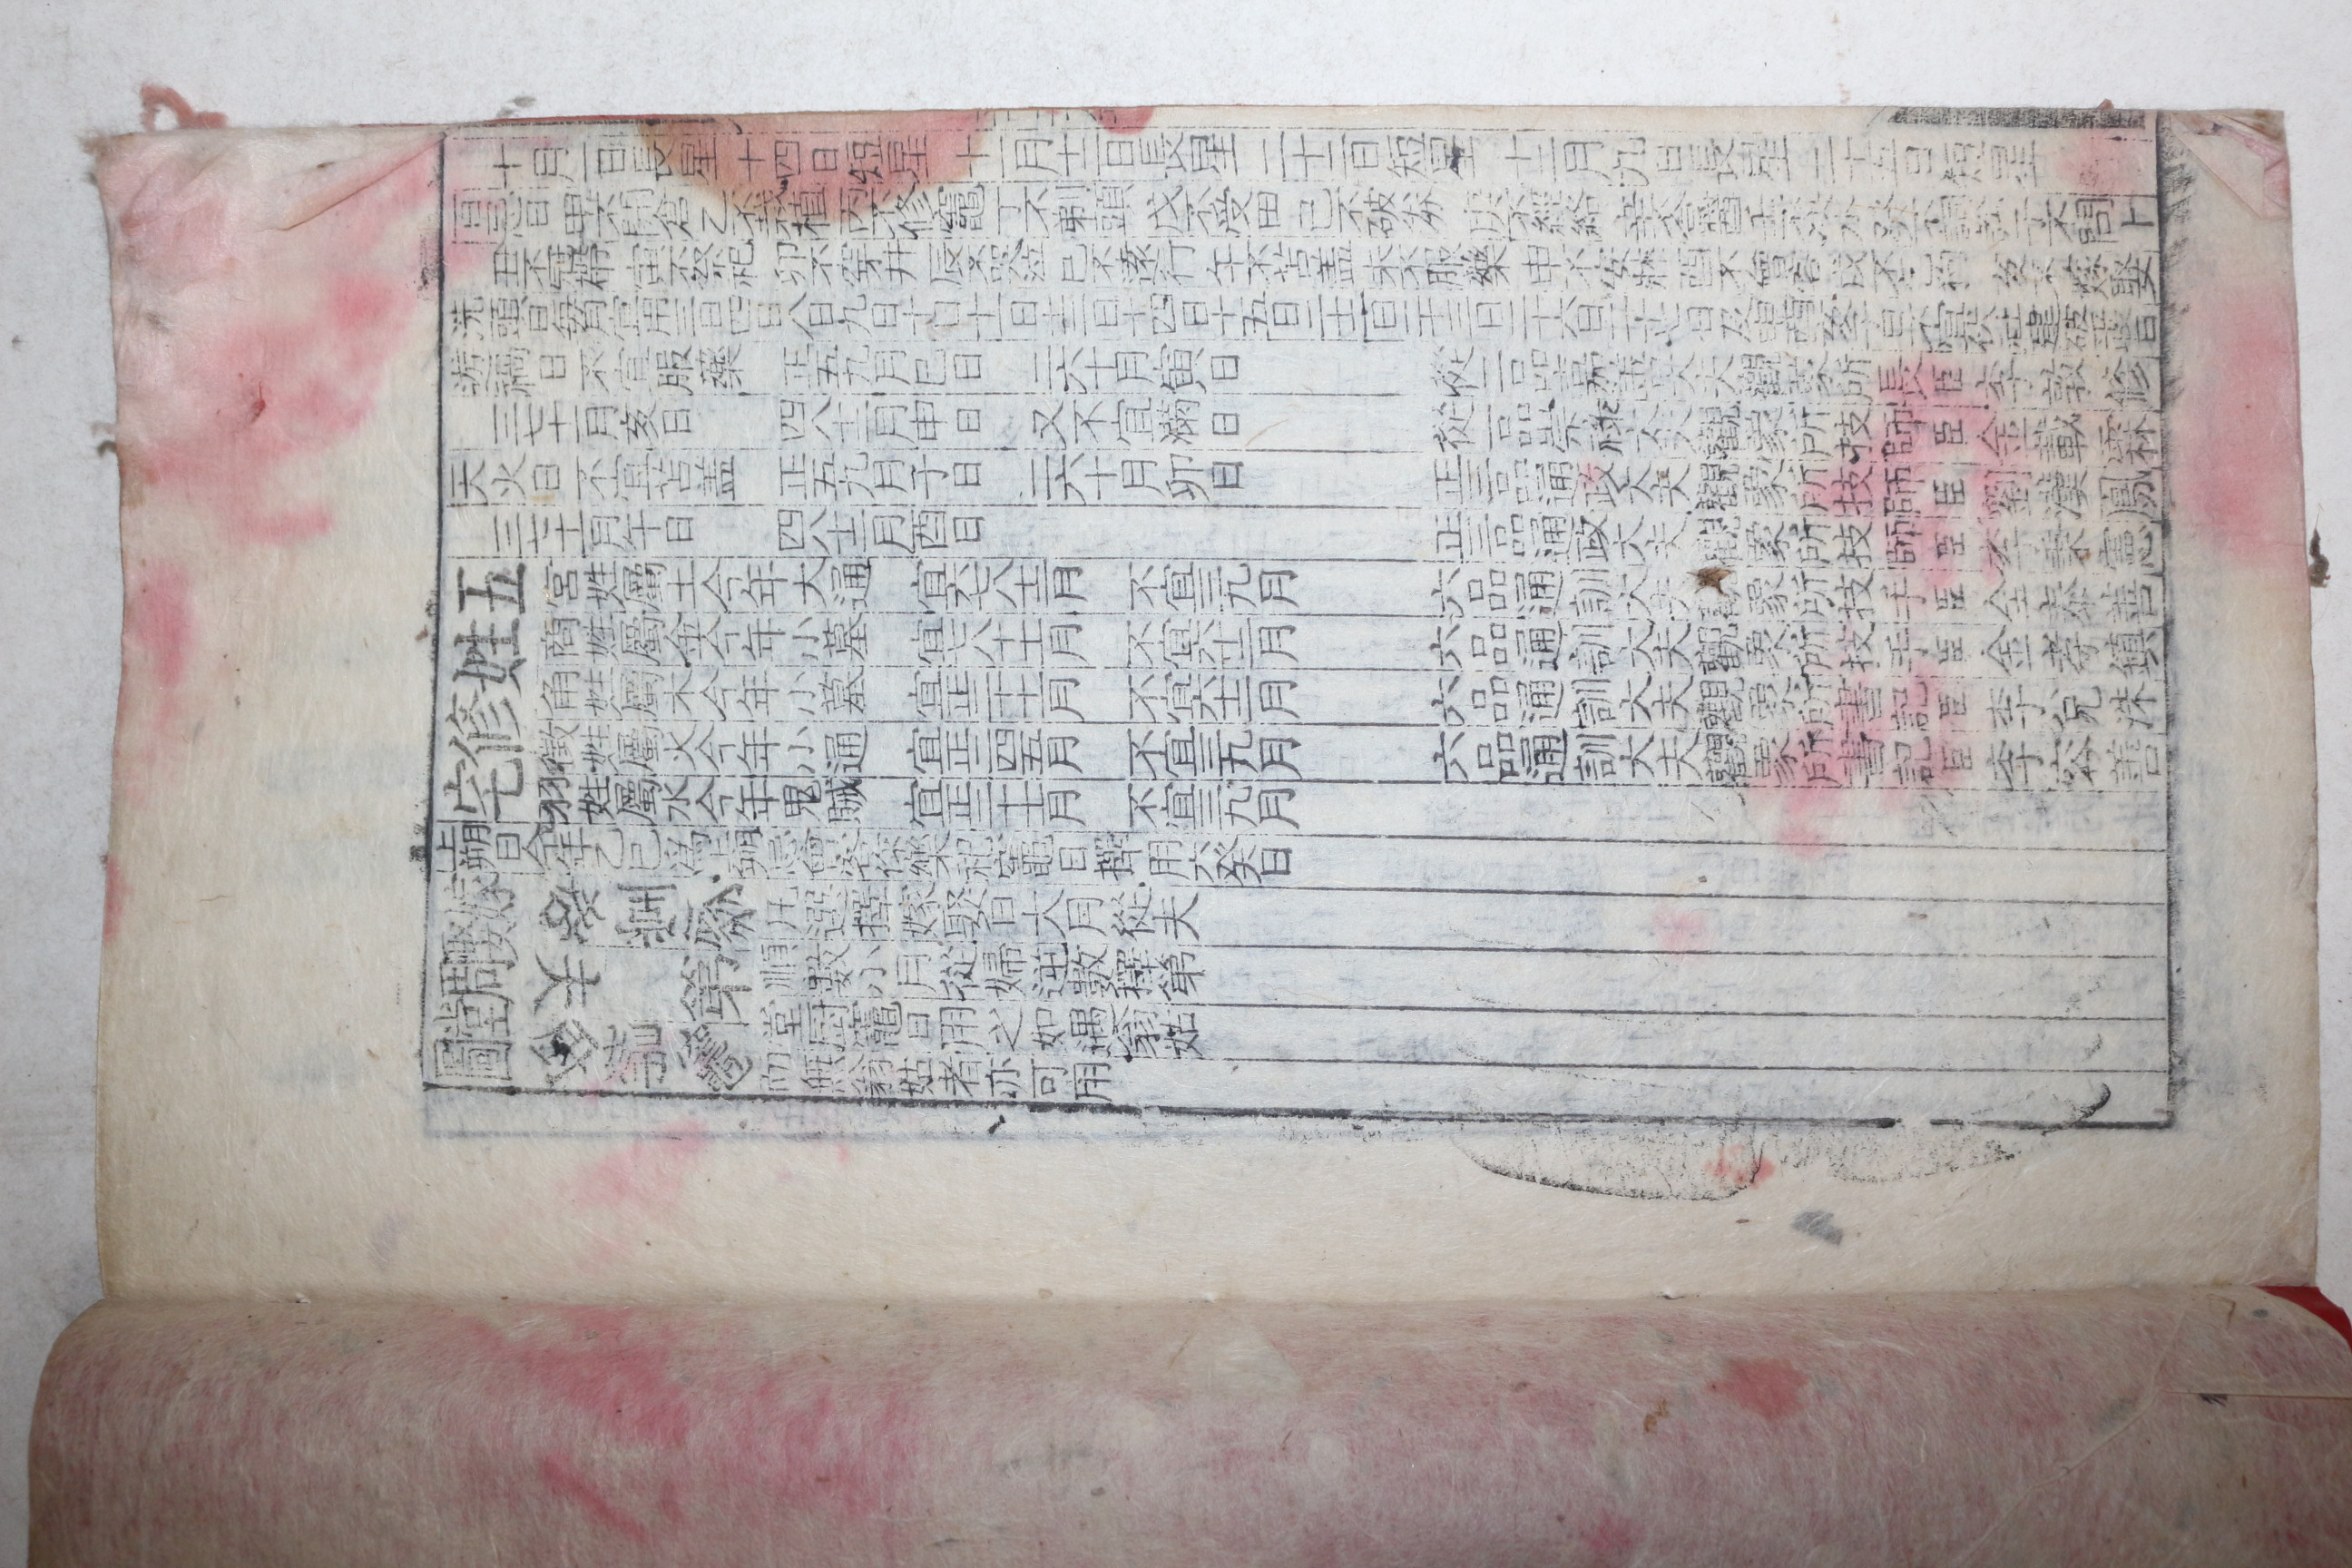 十月一日長星十四日短星 十一月十二日長星 二十二日短星 十二月九日長星二十五日短星
百忌日 甲不開倉 乙不栽植 丙不修竈 丁不剃頭 戊不受田 己不破券 庚不經絡 辛不合醬 壬不決水 癸不詞訟 子不問卜
丑不冠帶 寅不祭祀 卯不穿井 辰不哭泣 巳不遠行 午不苫盖 未不服藥 申不安牀 酉不會客 戌不乞狗 亥不嫁娶
洗頭日 每月宜用三日四日八日九日十日十一日十三日十四日十五日二十二日二十三日二十六日二十七日及申酉亥子日不宜伏社建破平收日
遊禍日 不宜服藥 正五九月巳日 二六十月寅日
三七十一月亥日 四八十二月申日 又不宜滿日
天火日 不宜苫盖 正五九月子日 二六十月卯日
三七十一月午日 四八十二月酉日
五姓修宅
宮姓屬土今年大通 宜六七八十二月 不宜三九月
商姓屬金今年小墓 宜七八十十一月 不宜六十二月
角姓屬木今年小墓 宜正二十十一月 不宜六十二月
徵姓屬火今年小通 宜正二四五月 不宜三九月
羽姓屬水今年鬼賊 宜正二十十一月 不宜三九月
上朔日 今年乙巳爲上朔忌會客作樂祀竈日擇用六癸日
嫁娶周堂圖
夫 姑 堂 翁 第 竈 婦 廚
凡選擇嫁娶日大月從夫
順數小月從婦逆數擇第
堂廚竈日用之如遇翁姑
而無翁姑者亦可用
從二品嘉善大夫觀象所長臣李敦修
從一品崇祿大夫觀象所技師臣金載霖
正三品通政大夫觀象所技師臣劉漢鳳
正三品通政大夫觀象所技師臣李秉憲
六品通訓大夫觀象所技手臣全泰善
六品通訓大夫觀象所技手臣金孝鎮
六品通訓大夫觀象所書記臣李兌洙
六品通訓大夫觀象所書記臣李容善